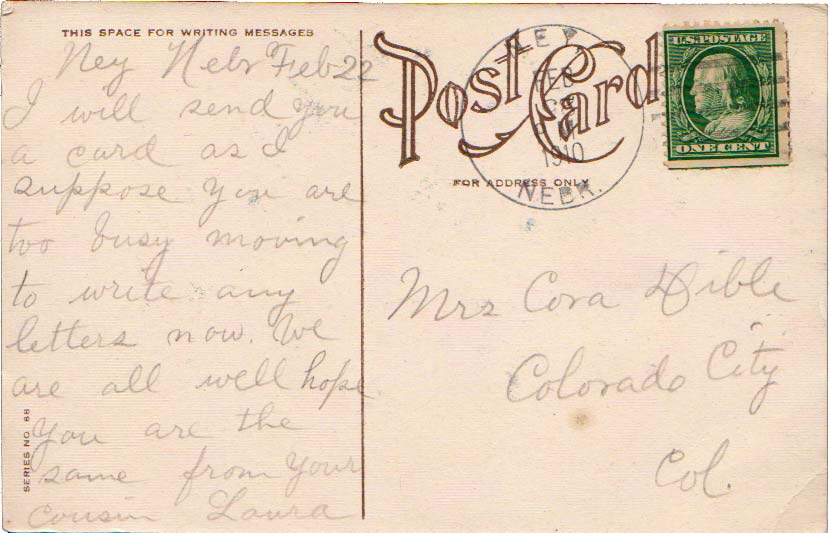 THIS SPACE FOR WRITING MESSAGES
Ney Nebr Feb 22
I will send you
a card as I
suppose you are
too busy moving
to write any
letters now. We
are all well hope
you are the
same from your
cousin Laura
SERIES NO 68
Post Card
FOR ADDRESS ONLY
FEB
1910
NEBR.
U.S. POSTAGE
ONE CENT
Mrs Cora Dible
Colorado City
Col.